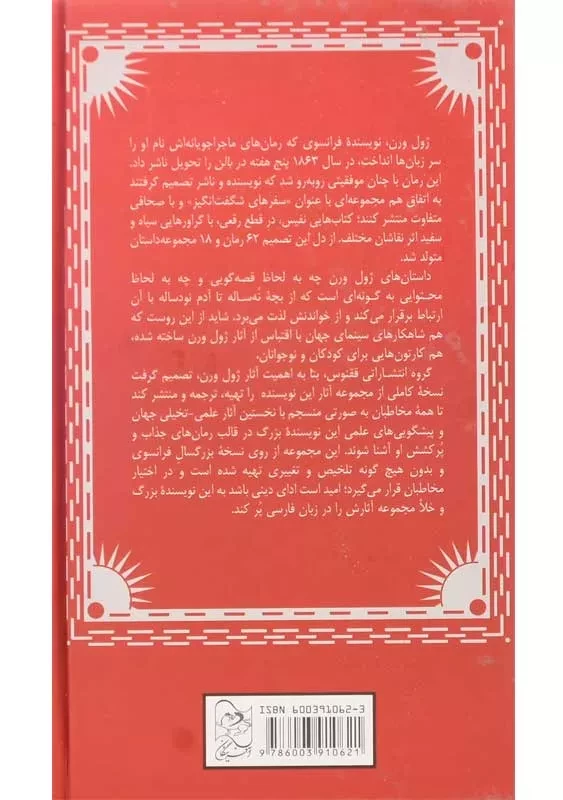 ژول ورن، نویسندهٔ فرانسوی که رمان‌های ماجراجویانه‌اش نام او را
سر زبان‌ها انداخت، در سال ۱۸۶۳ پنج هفته در بالن را تحویل ناشر داد.
این رمان با چنان موفقیتی روبه‌رو شد که نویسنده و ناشر تصمیم گرفتند
به اتفاق هم مجموعه‌ای با عنوان «سفرهای شگفت‌انگیز» و با صحافی
متفاوت منتشر کنند؛ کتاب‌هایی نفیس، در قطع رقعی، با گراورهایی سیاه و
سفید اثر نقاشان مختلف. از دل این تصمیم ۶۲ رمان و ۱۸ مجموعه‌داستان
متولد شد.
داستان‌های ژول ورن چه به لحاظ قصه‌گویی و چه به لحاظ
محتوایی به گونه‌ای است که از بچهٔ نُه‌ساله تا آدم نودساله با آن
ارتباط برقرار می‌کند و از خواندنش لذت می‌برد. شاید از این روست که
هم شاهکارهای سینمای جهان با اقتباس از آثار ژول ورن ساخته شده،
هم کارتون‌هایی برای کودکان و نوجوانان.
گروه انتشاراتی ققنوس، بنا به اهمیت آثار ژول ورن، تصمیم گرفت
نسخهٔ کاملی از مجموعه آثار این نویسنده را تهیه، ترجمه و منتشر کند
تا همهٔ مخاطبان به صورتی منسجم با نخستین آثار علمی-تخیلی جهان
و پیشگویی‌های علمی این نویسندهٔ بزرگ در قالب رمان‌های جذاب و
پُرکشش او آشنا شوند. این مجموعه از روی نسخهٔ بزرگسال فرانسوی
و بدون هیچ گونه تلخیص و تغییری تهیه شده است و در اختیار
مخاطبان قرار می‌گیرد؛ امید است ادای دینی باشد به این نویسندهٔ بزرگ
و خلأ مجموعه آثارش را در زبان فارسی پُر کند.
ISBN 600391062-3
9 786003 910621